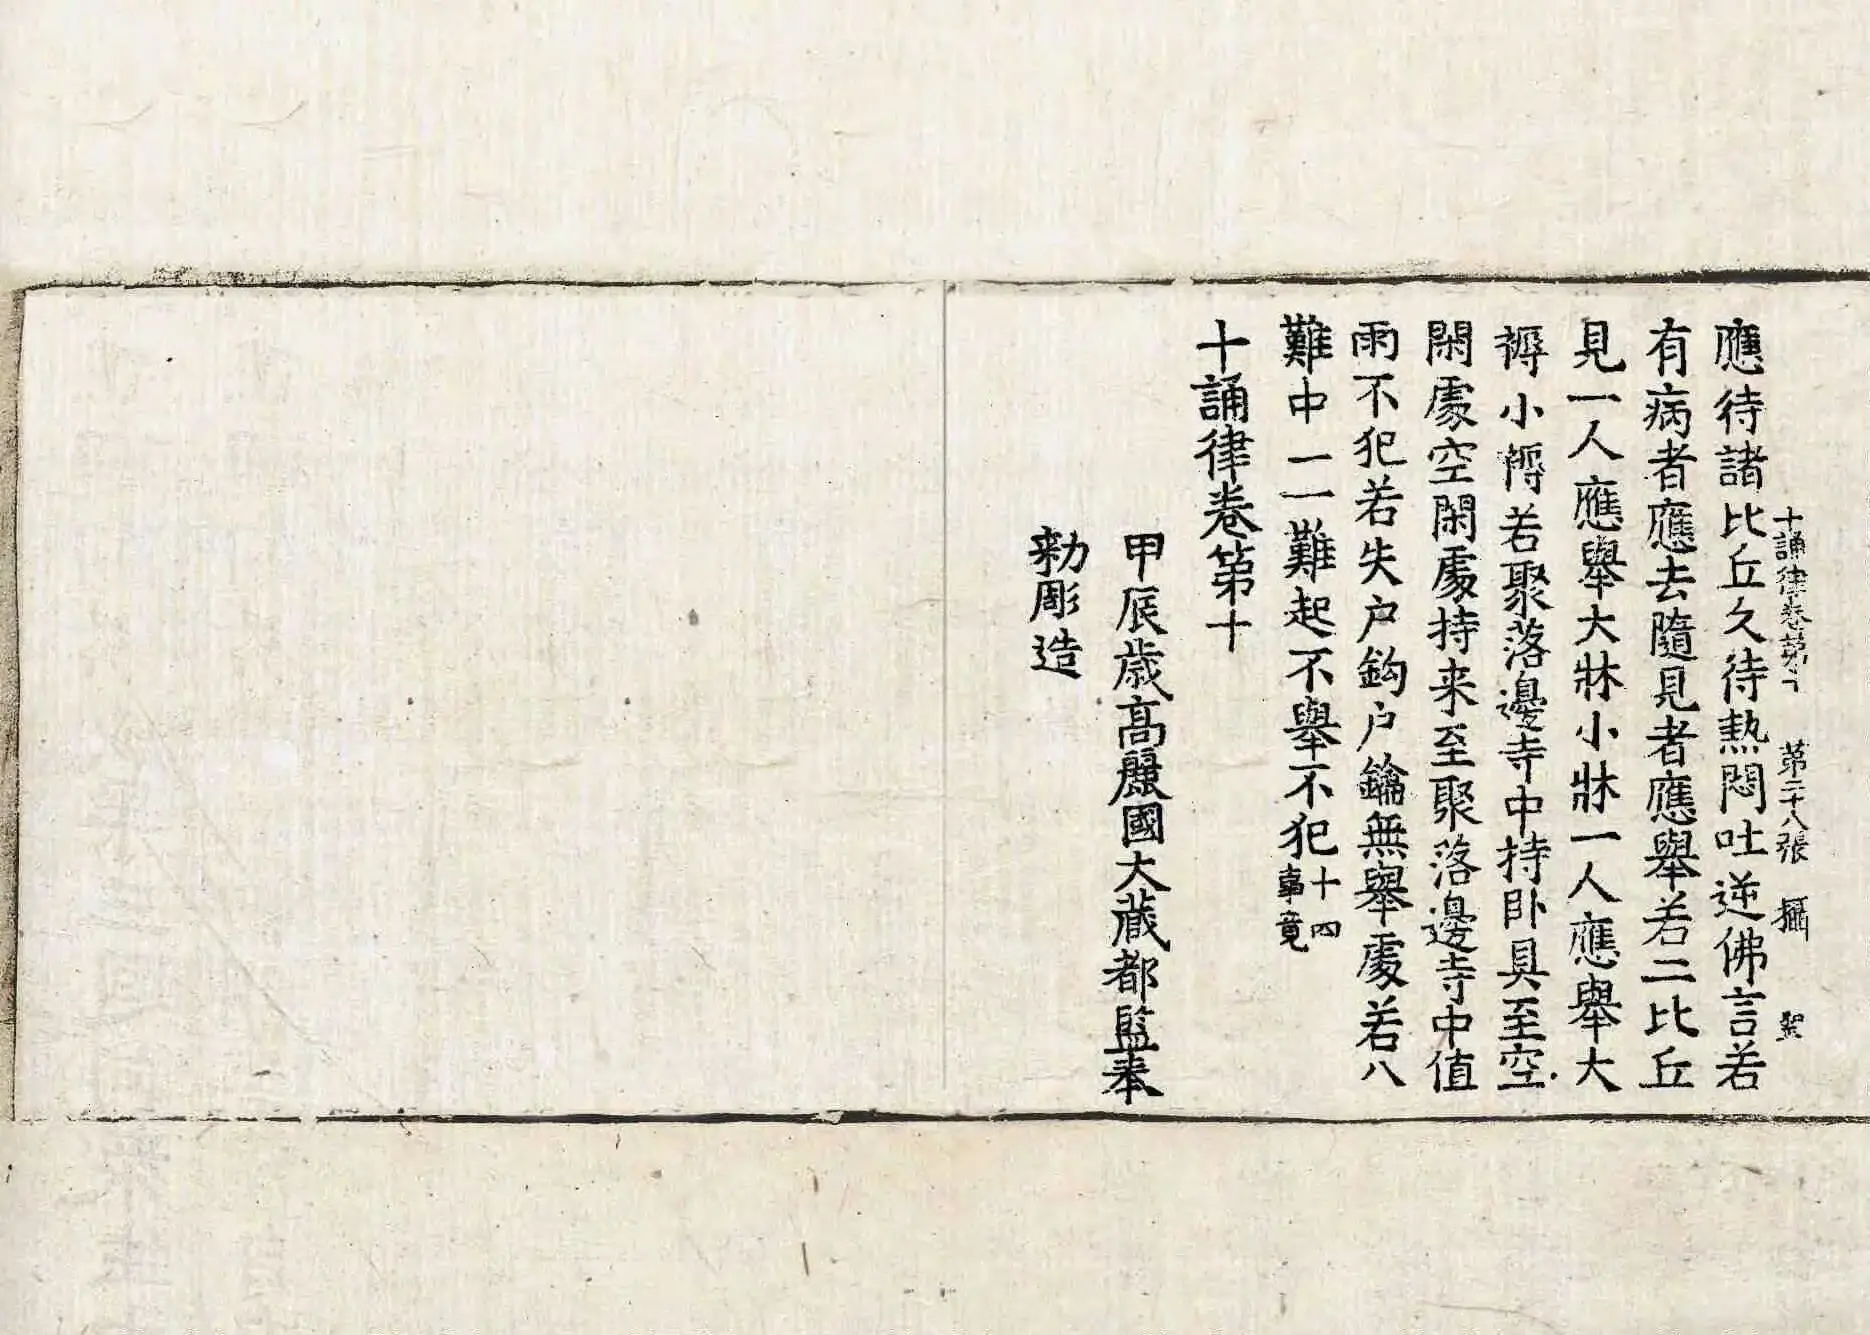 十誦律卷第十 第二十八張 攝 聖
應待諸比丘久待熱悶吐逆佛言若
有病者應去隨見者應舉若二比丘
見一人應舉大牀小牀一人應舉大
褥小褥若聚落邊寺中持卧具至空
閑處空閑處持来至聚落邊寺中值
雨不犯若失户鉤户鑰無舉處若八
難中一一難起不舉不犯十四事竟
十誦律卷第十
甲辰歲高麗國大藏都監奉
勑彫造